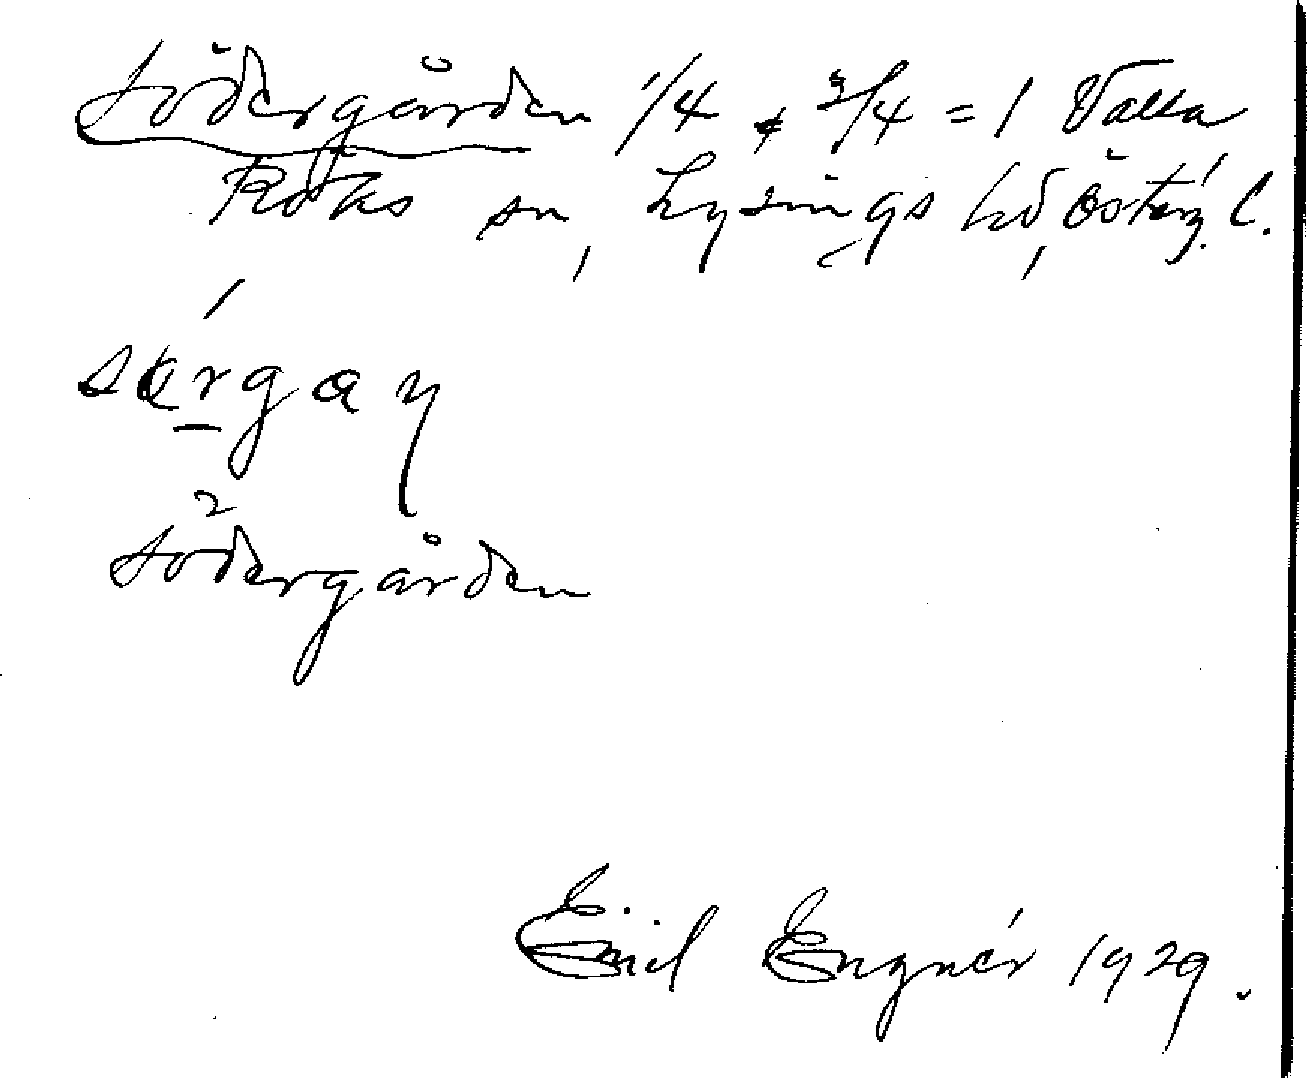 Södergården 1/4 + 3/4 = 1 Valla
Röks sn, Lysings hd, Österg. l.
Södergården
Emil Engnér 1929.